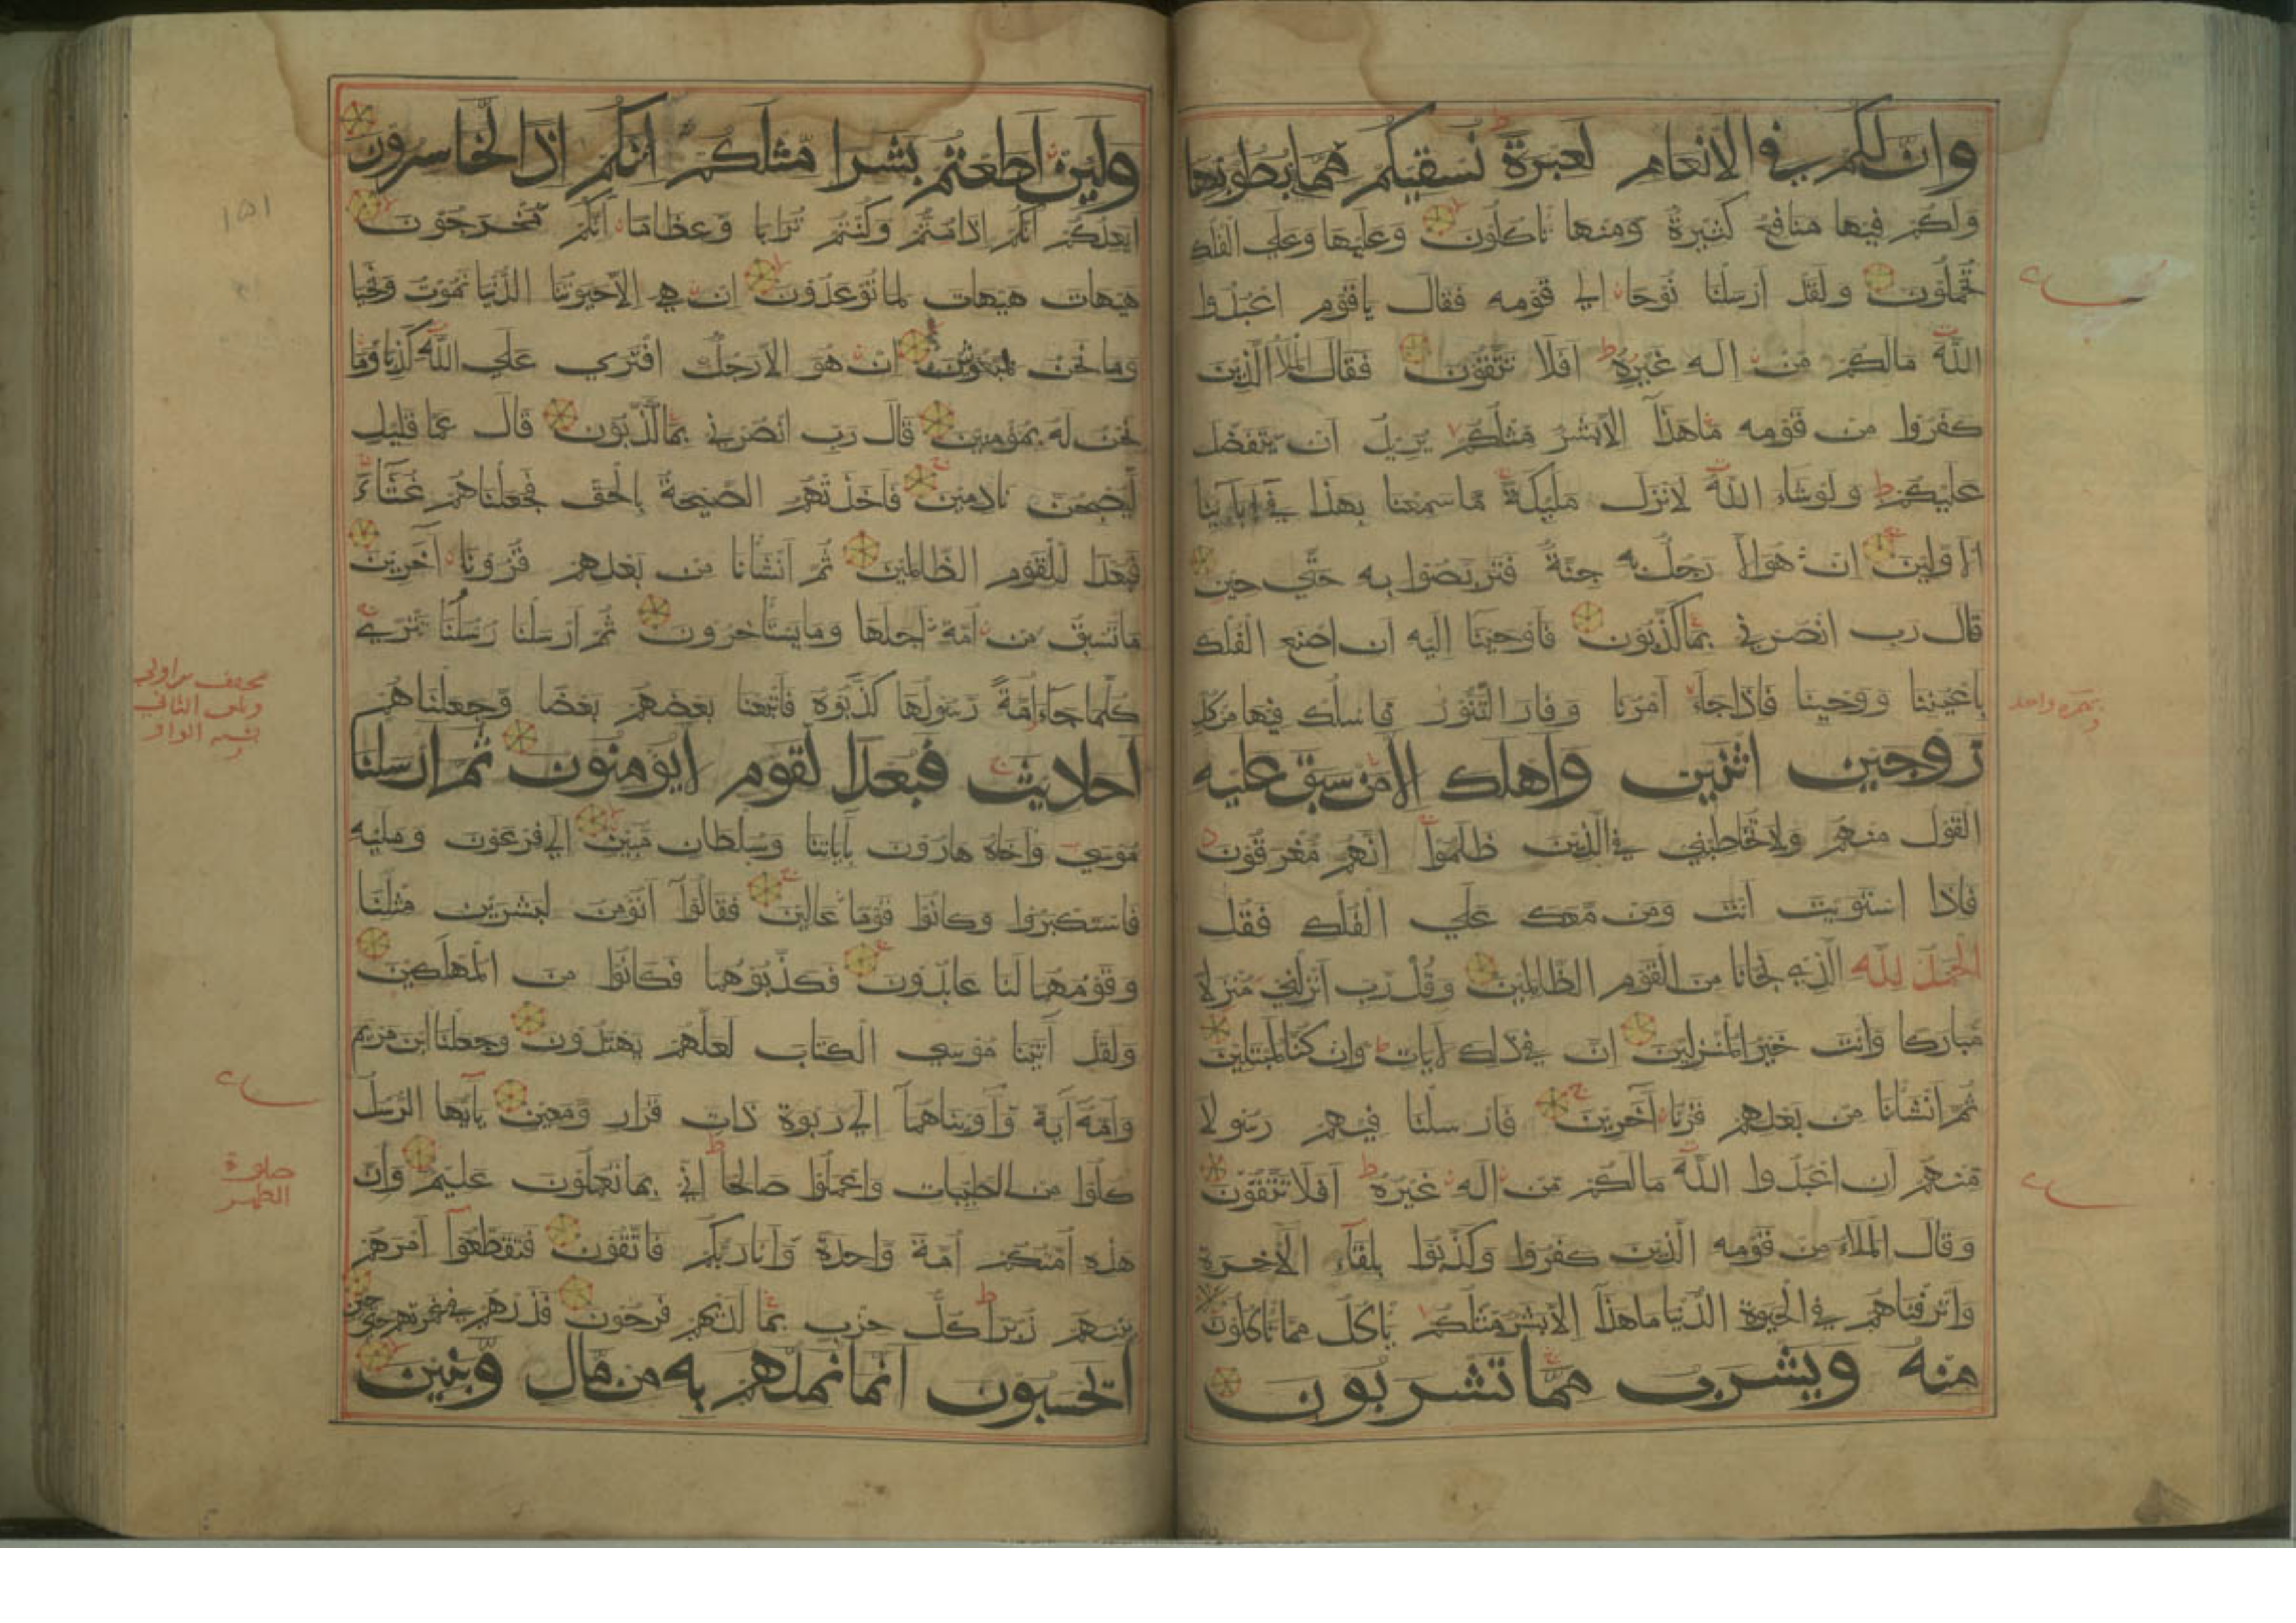 وان لكم في الانعام لعبرة نسقيكم مما بطونها
ولكم فيها منافع كثيرة ومنها تاكلون وعليها وعلي الفلك
تحملون ولقد ارسلنا نوحا الي قومه فقال ياقوم اعبدوا
الله مالكم من اله غيره افلا تتقون فقال الملا الذين
كفروا من قومه ماهذا الا بشر مثلكم يريد ان يتفضل
عليكم ولوشاء الله لانزل مليكة ماسمعنا بهذا في ابائنا
الاولين ان هو الا رجل به جنة فتربصوا به حتي حين
قال رب انصرني بما كذبون فاوحينا اليه ان اصنع الفلك
باعيننا ووحينا فاذا جاء امرنا وفار التنور فاسلك فيها من كل
زوجين اثنين واهلك الا من سبق عليه
القول منهم ولا تخاطبني في الذين ظلموا انهم مغرقون
فاذا استويت انت ومن معك علي الفلك فقل
الحمد لله الذي نجانا من القوم الظالمين وقل رب انزلني منزلا
مباركا وانت خير المنزلين ان في ذلك لايات وان كنا لمبتلين
ثم انشانا من بعدهم قرنا اخرين فارسلنا فيهم رسولا
منهم ان اعبدوا الله مالكم من اله غيره افلا تتقون
وقال الملاء من قومه الذين كفروا وكذبوا بلقاء الاخرة
واترفناهم في الحيوة الدنيا ماهذا الا بشر مثلكم ياكل مما تاكلون
منه ويشرب مما تشربون
بهمزة واحد
ولين اطعتم بشرا مثلكم انكم اذا لخاسرون
ايعدكم انكم اذا متم وكنتم ترابا وعظاما انكم مخرجون
هيهات هيهات لما توعدون ان هي الا حيوتنا الدنيا نموت ونحيا
وما نحن بمبعوثين ان هو الا رجل افتري علي الله كذبا وما
نحن له بمؤمنين قال رب انصرني بما كذبون قال عما قليل
ليصبحن نادمين فاخذتهم الصيحة بالحق فجعلناهم غثاء
فبعدا للقوم الظالمين ثم انشانا من بعدهم قرونا اخرين
ما تسبق من امة اجلها وما يستاخرون ثم ارسلنا رسلنا تتري
كلما جاء امة رسولها كذبوه فاتبعنا بعضهم بعضا وجعلناهم
احاديث فبعدا لقوم لا يومنون ثم ارسلنا
موسي واخاه هارون باياتنا وسلطان مبين الي فرعون ومليه
فاستكبروا وكانوا قوما عالين فقالوا انومن لبشرين مثلنا
وقومهما لنا عابدون فكذبوهما فكانوا من المهلكين
ولقد اتينا موسي الكتاب لعلهم يهتدون وجعلنا ابن مريم
وامه اية واويناهما الي ربوة ذات قرار ومعين ياايها الرسل
كلوا من الطيبات واعملوا صالحا اني بما تعملون عليم وان
هذه امتكم امة واحدة وانا ربكم فاتقون فتقطعوا امرهم
بينهم زبرا كل حزب بما لديهم فرحون فذرهم في غمرتهم حتي حين
ايحسبون انما نمدهم به من مال وبنين
١٥١
صلوة
الظهر